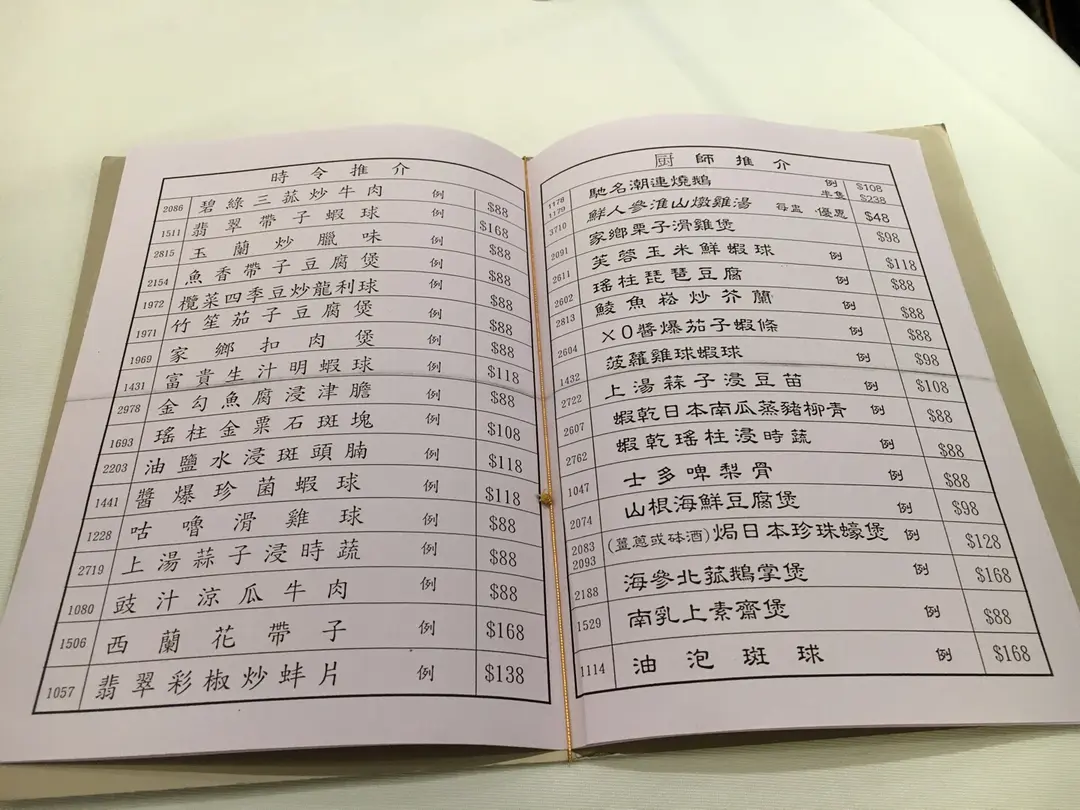 時令推介
2086 碧綠三菇炒牛肉 例 $88
1511 翡翠帶子蝦球 例 $168
2815 玉蘭炒臘味 例 $88
2154 魚香帶子豆腐煲 例 $88
1972 欖菜四季豆炒龍利球 例 $88
1971 竹笙茄子豆腐煲 例 $88
1969 家鄉扣肉煲 例 $88
1431 富貴生汁明蝦球 例 $118
2978 金勾魚腐浸津膽 例 $88
1693 瑤柱金粟石斑塊 例 $108
2203 油鹽水浸斑頭腩 例 $118
1441 醬爆珍菌蝦球 例 $118
1228 咕嚕滑雞球 例 $88
2719 上湯蒜子浸時蔬 例 $88
1080 豉汁涼瓜牛肉 例 $88
1506 西蘭花帶子 例 $168
1057 翡翠彩椒炒蚌片 例 $138
廚師推介
1178 馳名潮連燒鵝 例 $108
1179 半隻 $238
3710 鮮人參淮山燉雞湯 每盅 優惠 $48
2091 家鄉栗子滑雞煲 $98
2611 芙蓉玉米鮮蝦球 例 $118
2602 瑤柱琵琶豆腐 例 $88
2813 鯪魚崧炒芥蘭 例 $88
2604 XO醬爆茄子蝦條 例 $88
1432 菠蘿雞球蝦球 例 $98
2722 上湯蒜子浸豆苗 例 $108
2607 蝦乾日本南瓜蒸豬柳青 例 $88
2762 蝦乾瑤柱浸時蔬 例 $88
1047 士多啤梨骨 $88
2074 山根海鮮豆腐煲 例 $98
2083 (薑蔥或砵酒)焗日本珍珠蠔煲 例 $128
2093
2188 海參北菰鵝掌煲 例 $168
1529 南乳上素齋煲 例 $88
1114 油泡斑球 例 $168